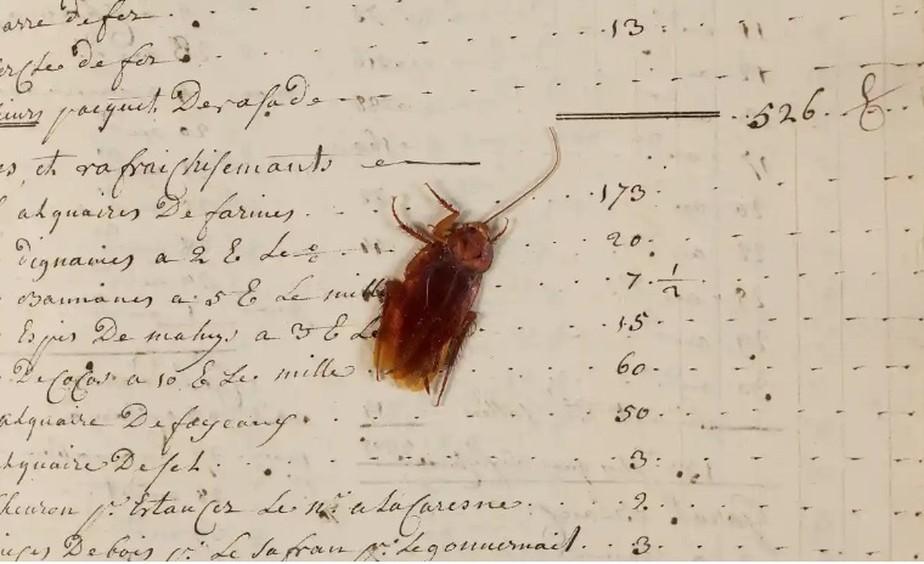 arre de fer 13
cercle de fer
paquet De rasade 526
et rafraichisemants
alquaires De farines 173
Dignames a 2 E Le % 20
Bannanes a 5 E Le mille 7 1/2
Espis De mahys a 3 E Le 15
De Cocos a 10 E Le mille 60
alquaire De fayeaux 50
alquaire De sel 3
Le a La Caresne 2
De bois Le Safran Le gouvernail 3